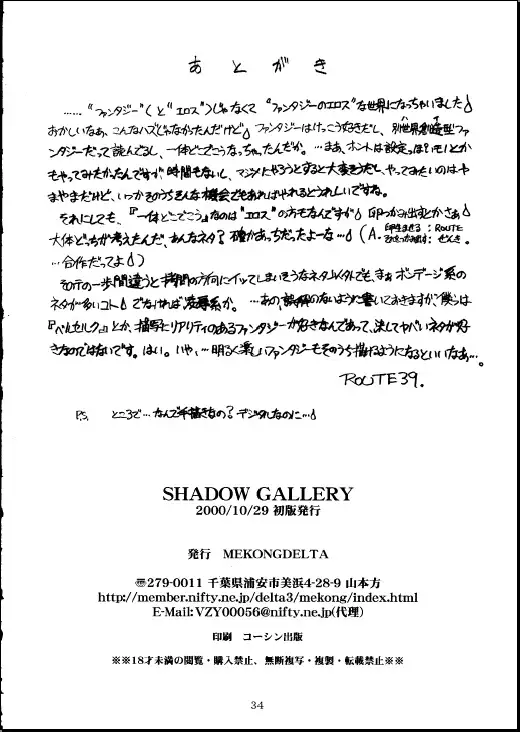 あとがき
……"ファンタジー"(と"エロス")じゃなくて "ファンタジーのエロス"な世界になっちゃいました
おかしいなぁ、こんなハズじゃなかったんだけど ファンタジーはけっこう好きだし、別世界創造型ファ
ンタジーだって読んでるし、一体どこでこうなっちゃったんだか。…まぁ、ホントは設定っぽいモノとか
もやってみたかったんですが 時間もないし、マジメにやろうとすると大変そうだし、やってみたいのはや
まやまだけど、いつかそのうちそんな機会でもあればやれるとうれしいですね。
それにしても、『一体どこでこう』なのは"エロス"の方もなんですが 卵つかみ出すとかさぁ
大体どっちが考えたんだ、あんなネタ? 確かあっちだったよーな…(A. 卵産ませる:ROUTE
…合作だってよ)
その一歩間違うと拷問の方向にイッてしまいそうなネタ以外でも、まぁ ボンデージ系の
ネタが多いコト でなければ凌辱系か。…あの、誤解のないように書いておきますが、僕らは
『ベルセルク』とか、描写にリアリティのあるファンタジーが好きなんであって、決してヤバいネタが好
きなのではないです。はい。いや、…明るく楽しいファンタジーもそのうち描けるようになるといいなぁ…。
ROUTE39.
P.S. ところで…なんで手描きなの? デジタルなのに…
SHADOW GALLERY
2000/10/29 初版発行
発行 MEKONGDELTA
〠279-0011 千葉県浦安市美浜4-28-9 山本方
http://member.nifty.ne.jp/delta3/mekong/index.html
E-Mail:VZY00056@nifty.ne.jp(代理)
印刷 コーシン出版
※※18才未満の閲覧・購入禁止、無断複写・複製・転載禁止※※
34